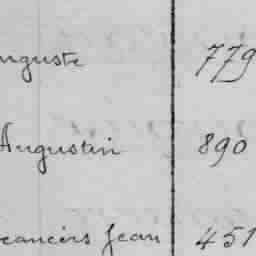 uguste 779
Augustin 890
rancois Jean 451